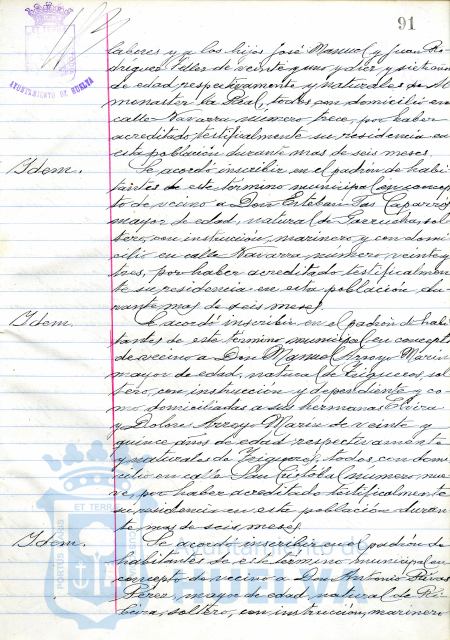 91
AYUNTAMIENTO DE HUELVA
laberes y a los hijos José Manuel y Juan Ro-
dríguez Vélez de veinte y uno y diez y siete años
de edad respectivamente y naturales de Al-
monaster la Real, todos con domicilio en
calle Navarra número trece, por haber
acreditado testificalmente su residencia en
esta población durante mas de seis meses.
Idem.
Se acordó inscribir en el padrón de habi-
tantes de este término municipal en concep-
to de vecino a Don Esteban Caparrós
mayor de edad, natural de Garrucha, sol-
tero, con instrucción, marinero y con domi-
cilio en calle Navarra, número veinte y
tres, por haber acreditado testificalmen-
te su residencia en esta población du-
rante mas de seis meses.
Idem.
Se acordó inscribir en el padrón de habi-
tantes de este término municipal en concepto
de vecino a Don Manuel Arroyo Marín
mayor de edad, natural de Trigueros, sol-
tero, con instrucción y dependiente y co-
mo domiciliadas a sus hermanas Elvira
y Dolores Arroyo Marín de veinte y
quince años de edad respectivamente
y naturales de Trigueros, todos con domi-
cilio en calle San Cristóbal número nue-
ve, por haber acreditado testificalmente
su residencia en esta población duran-
te mas de seis meses.
Idem.
Se acordó inscribir en el padrón de
habitantes de este término municipal en
concepto de vecino a Don Antonio Rivas
Pérez, mayor de edad, natural de Ri-
beira, soltero, con instrucción, marinero
ET TERRA
Ayuntamiento de